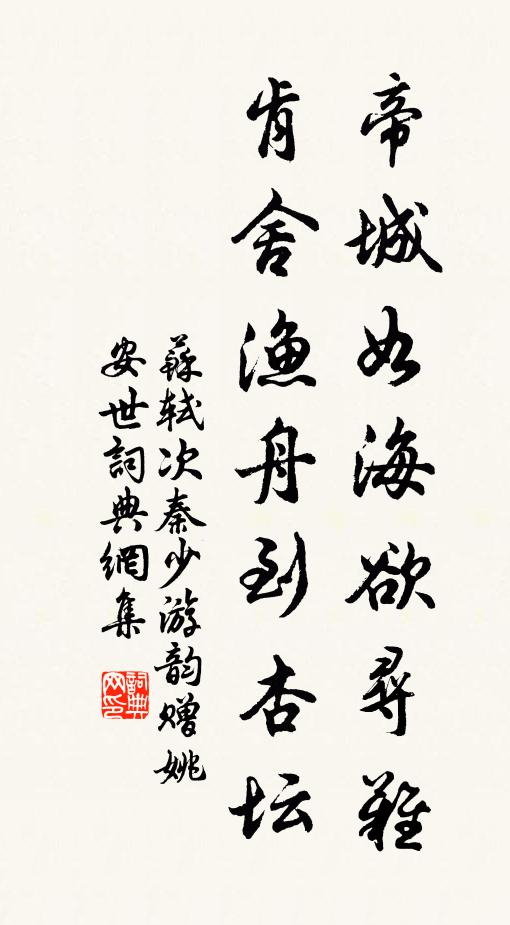 帝城如海欲尋難
肯舍漁舟到杏坛
蘇軾次秦少游韵赠姚
安世詞典網集
詞典
网印